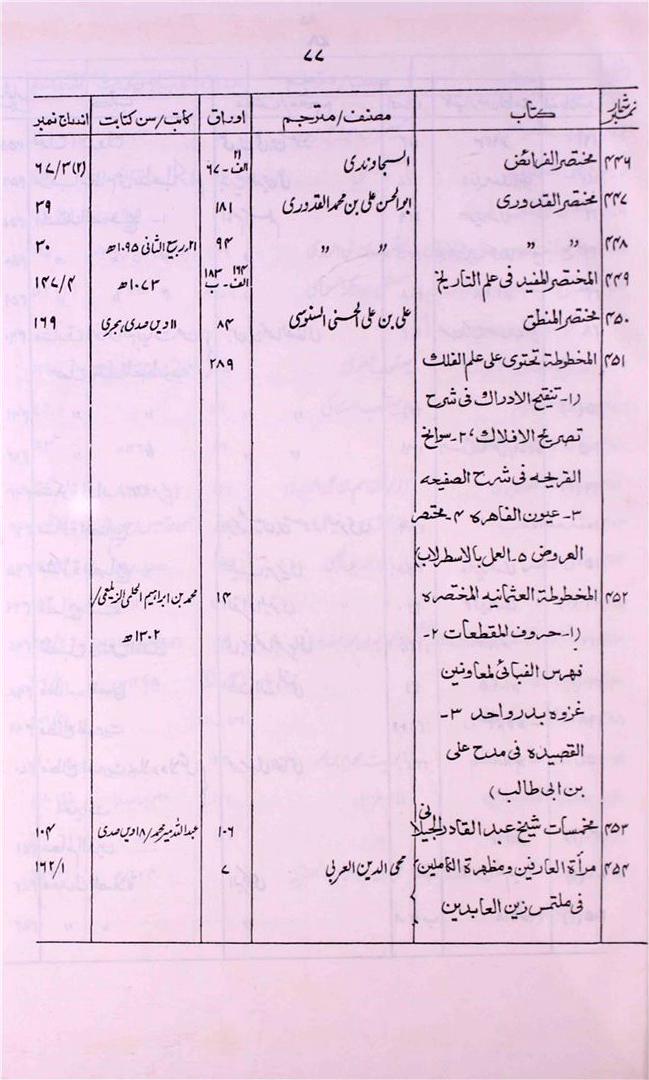 ۷۷
نمبر شمار | کتاب | مصنف/مترجم | اوراق | کاتب/سن کتابت | اندراج نمبر
۴۴۶ | مختصر الفرائض | السجاوندی | ۲۱ الف - ۶۷ | | ۶۷/۳ (۲)
۴۴۷ | مختصر القدوری | ابو الحسن علی بن محمد القدوری | ۱۸۱ | | ۳۹
۴۴۸ | " " | " " | ۹۴ | ۲۱ ربیع الثانی ۱۰۹۵ھ | ۳۰
۴۴۹ | المختصر المفید فی علم التاریخ | | ۱۶۴ ۱۸۳ الف - ب | ۱۰۷۳ھ | ۱۴۷/۴
۴۵۰ | مختصر المنطق | علی بن علی الحسنی السنوسی | ۸۴ | ۱۱ ویں صدی ہجری | ۱۶۹
۴۵۱ | المخطوطة تحتوی علی علم الفلک | | ۲۸۹
(۱- تنقیح الادراک فی شرح
تصریح الافلاک، ۲- سوانح
القریحه فی شرح الصفیحه
۳- عیون القاهره ۴- مختصر
العروض ۵- العمل بالاسطرلاب)
۴۵۲ | المخطوطة العثمانیه المختصره | | ۱۴ | محمد بن ابراهیم الحلبی الزیلعی/
(۱- حروف المقطعات ۲- | | | ۱۳۰۲ھ
فهرس الفبائی لمعاونین
غزوه بدر واحد ۳-
القصیده فی مدح علی
بن ابی طالب)
۴۵۳ | مخمسات شیخ عبد القادر الجیلانی | | ۱۰۶ | عبد اللہ میر محمد/۱۸ ویں صدی | ۱۰۴
۴۵۴ | مرأة العارفین ومظهرة الکاملین | محی الدین العربی | ۷ | | ۱۶۲/۱
فی ملتمس زین العابدین